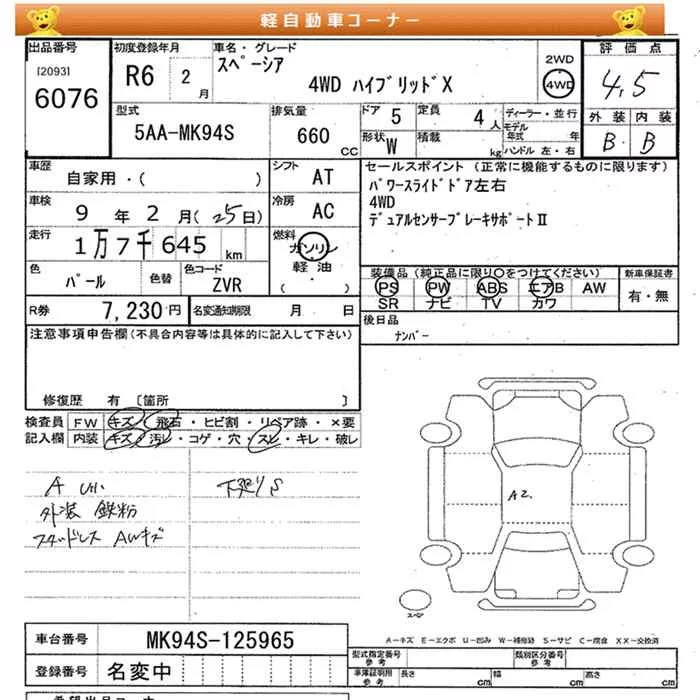 軽自動車コーナー
出品番号
[2093]
6076
初度登録年月
R6 2月
車名・グレード
スペーシア
4WD ハイブリッドX
2WD
4WD
評価点
4.5
外装 内装
B B
型式
5AA-MK94S
排気量
660 CC
ドア 5
定員 4人
形状 W
積載 kg
ディーラー・並行
モデル年式 年
ハンドル 左・右
車歴
自家用・( )
シフト AT
車検
9年2月(25日)
冷房 AC
走行
1万7千645km
燃料
ガソリン
軽油
( )
色 パール
色替
色コード ZVR
R券 7,230円
名変通知期限 月 日
セールスポイント (正常に機能するものに限ります)
パワースライドドア左右
4WD
デュアルセンサーブレーキサポートⅡ
装備品(純正品に限り○をつけてください)
PS PW ABS エアB AW
SR ナビ TV カワ
新車保証書
有・無
後日品
ナンバー
注意事項申告欄(不具合内容等は具体的に記入して下さい)
修復歴 有〔箇所 〕
検査員記入欄
FW キズ・飛石・ヒビ割・リペア跡・×要
内装 キズ・汚レ・コゲ・穴・スレ・キレ・破レ
外装 鉄粉
スタッドレス AWキズ
下廻りS
A2
スペア
A-キズ E-エクボ U-凹み W-補修跡 S-サビ C-腐食 XX-交換済
車台番号 MK94S-125965
登録番号 名変中
型式指定番号 参考
類別区分番号 参考
車庫証明用 参考
長さ cm
幅 cm
高さ cm
希望出品コーナー